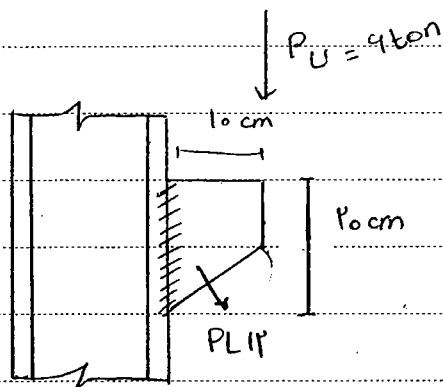 P_U = ۹ ton
۱۰ cm
۲۰ cm
PL۱۲